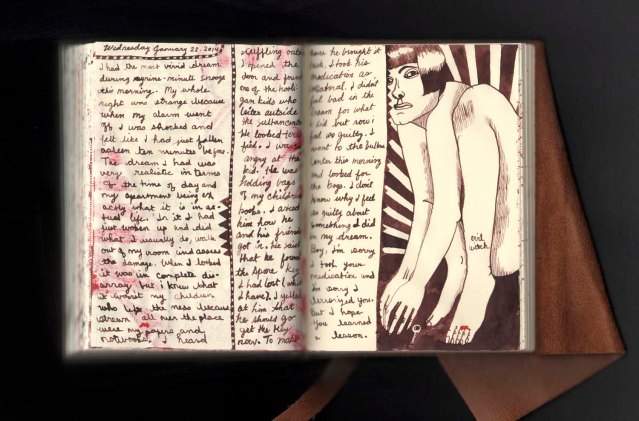 Wednesday January 22. 2014
I had the most vivid dream
during nine-minute snooze
this morning. My whole
night was strange because
when my alarm went
off I was shocked and
felt like I had just fallen
asleep ten minutes before.
The dream I had was
very realistic in terms
of the time of day and
my apartment being ex
actly what it is in ac-
tual life. In it I had
just woken up and did
what I usually do, walk
out of my room and assess
the damage. When I looked
it was in complete dis-
array, but I knew that
it wasn't my children
who left the mess because
strewn all over the place
were my papers and
notebooks. I heard
shuffling outs
I opened the
door and found
one of the hooli-
gan kids who
loiter outside
the
He looked
fied. I was so
angry at the
kid. He was
holding bags
of my children's
books. I asked
him how he
and his friends
got in. He said
that he found
the spare key
I had lost (which
I have). I yelled
at him that
he should go
get the key
now. To make
sure he brought it
back, I took his
medication as
collateral. I didn't
feel bad in the
dream for what
I did but now I
feel so guilty. I
went to the
Center this morning
and looked for
the boys. I don't
know why I feel
so guilty about
something I did
in my dream.
Boy, I'm sorry
I took your
medication and
I'm sorry I
terrorized you.
But I hope
you learned
a lesson.
evil
witch